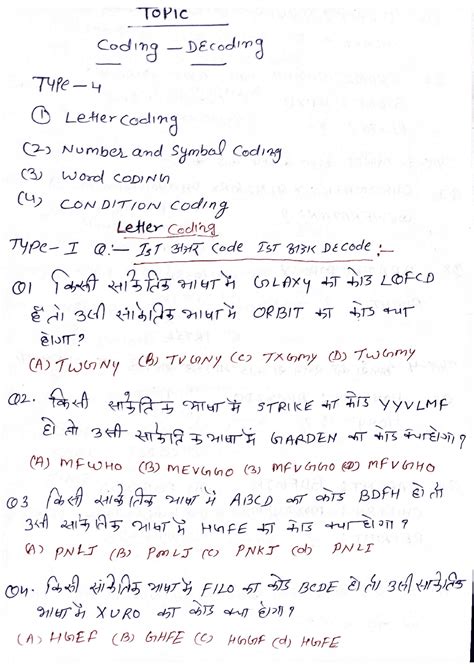 TOPIC
Coding – DEcoding
TYPE – 4
① Letter Coding
(2) Number and Symbol Coding
(3) Word CODING
(4) CONDITION Coding
Letter Coding
TYPE – I Q:– Ist अक्षर Code Ist अक्षर DECODE :–
Q1 किसी सांकेतिक भाषा में GLAXY का कोड LQFCD
है तो उसी सांकेतिक भाषा में ORBIT का कोड क्या
होगा?
(A) TWGNY (B) TVGNY (C) TXGMY (D) TWGMY
Q2. किसी सांकेतिक भाषा में STRIKE का कोड YYVLMF
हो तो उसी सांकेतिक भाषा में GARDEN का कोड क्या होगा?
(A) MFWHO (B) MEVGGO (3) MFVGGO (D) MFVGHO
Q3 किसी सांकेतिक भाषा में ABCD का कोड BDFH हो तो
उसी सांकेतिक भाषा में HGFE का कोड क्या होगा?
(A) PNLJ (B) PMLJ (C) PNKJ (d) PNLI
Q4. किसी सांकेतिक भाषा में FILO का कोड BCDE हो तो उसी सांकेतिक
भाषा में XURO का कोड क्या होगा?
(A) HGEF (B) GHFE (C) HGGF (d) HGFE